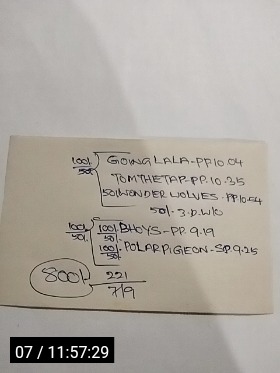 100/50/- GOING LALA-PP10.04
TOMTHETAP-PP.10.35
50/WONDER WOLVES-PP10.54
50/-3.D.W/C
100/50/- 100/50/- BHOYS-PP.9.19
100/50/- POLARPIGEON-SP.9.25
800/- 221
7/9
07 / 11:57:29